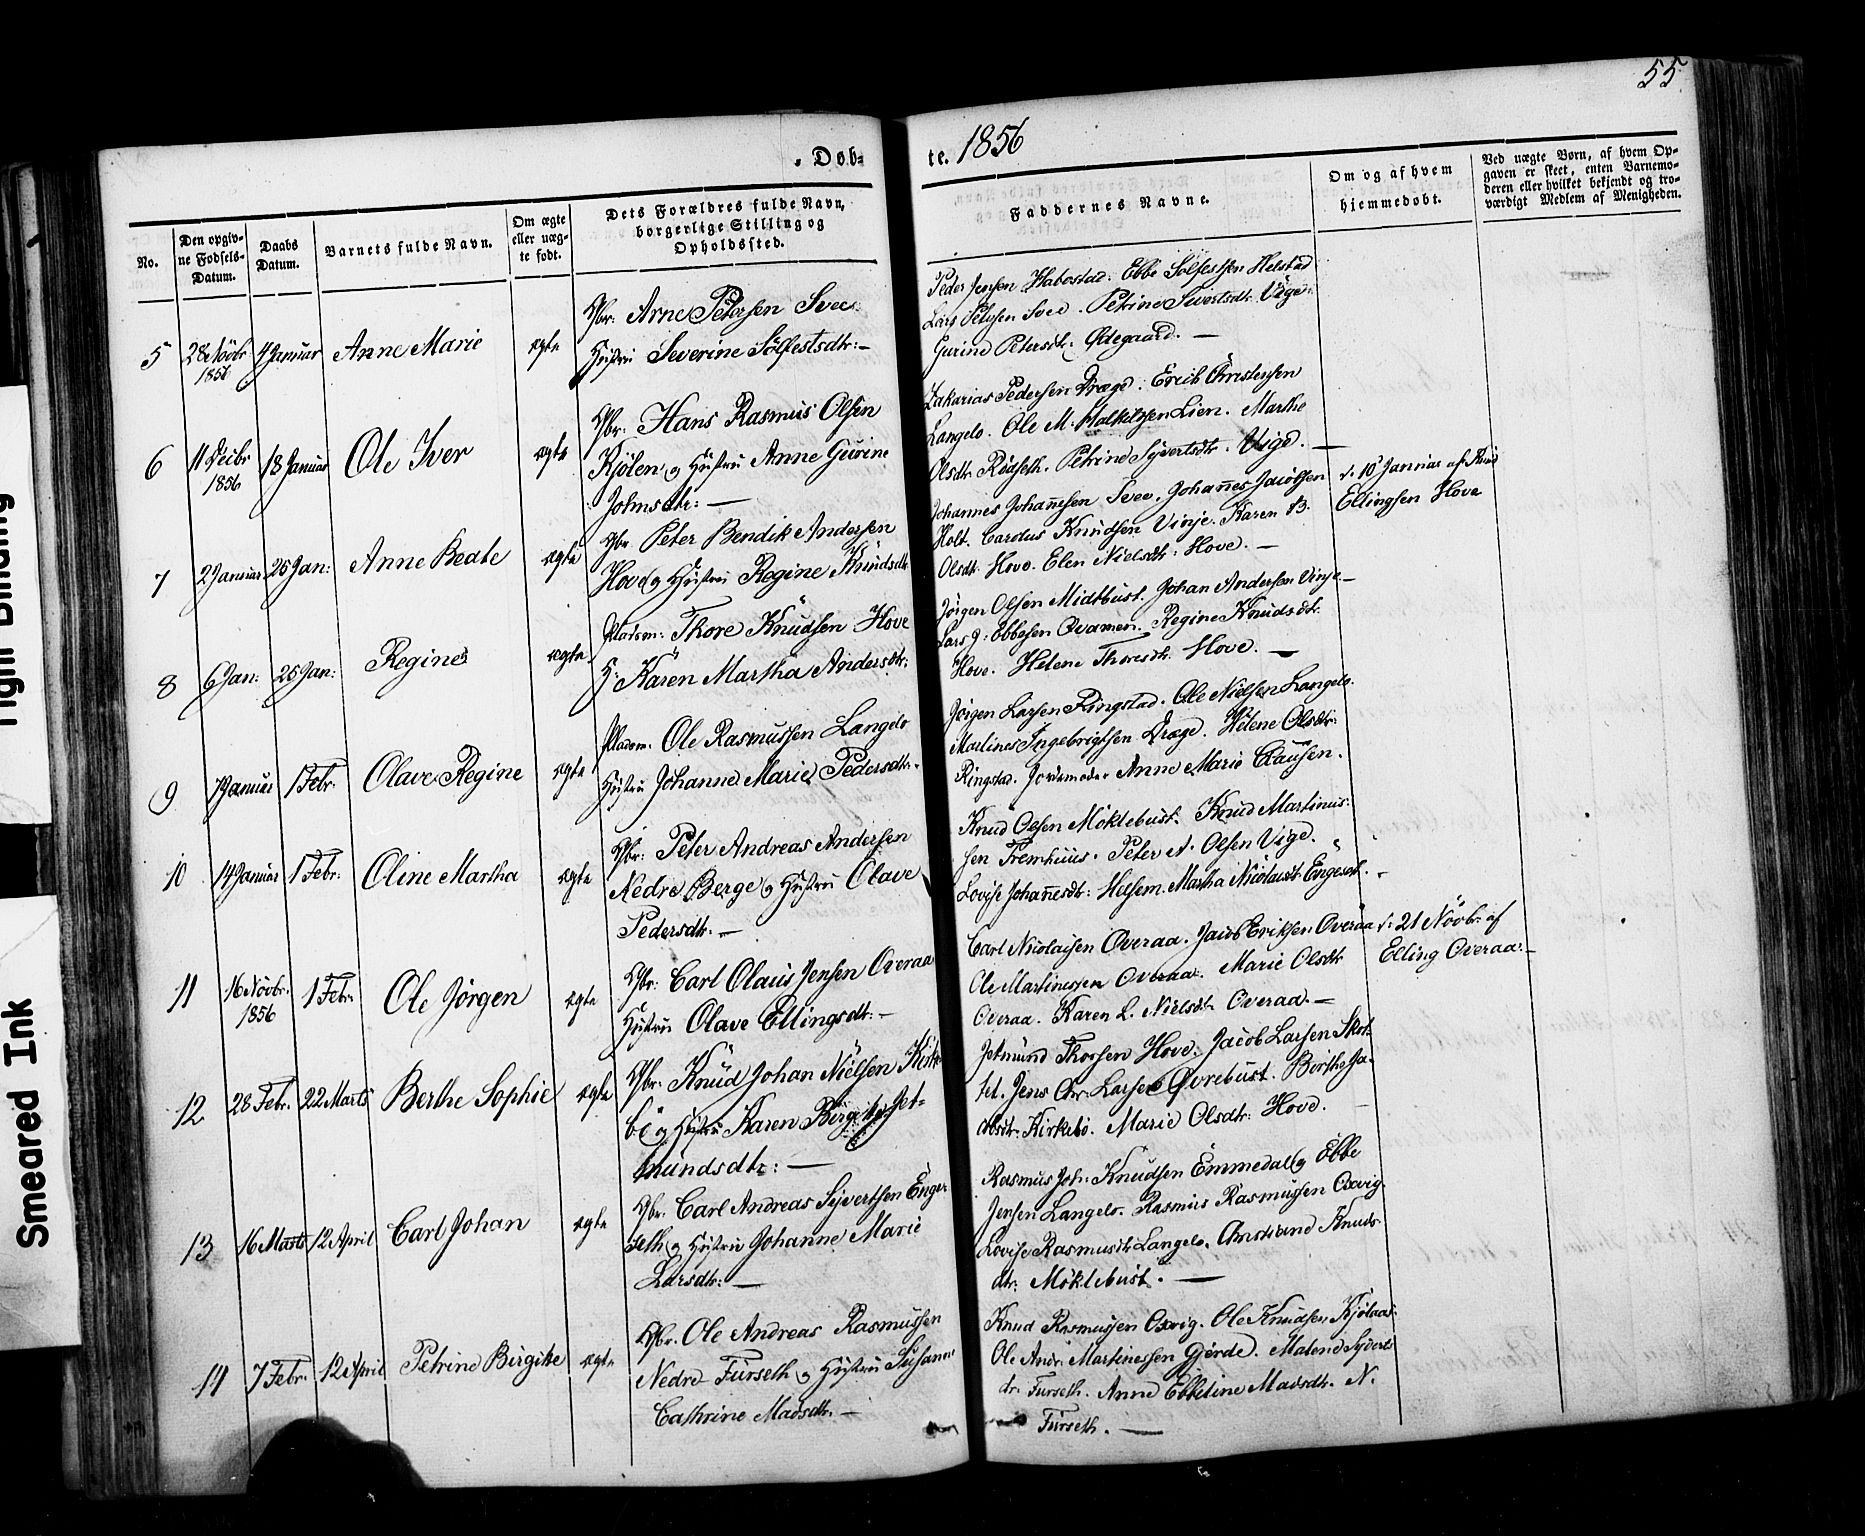 55
Døb=
te. 1856
No.
Den opgiv-
ne Fødsels-
Datum.
Daabs
Datum.
Barnets fulde Navn.
Om ægte
eller uæg-
te født.
Dets Forældres fulde Navn,
borgerlige Stilling og
Opholdssted.
Faddernes Navne.
Om og af hvem
hjemmedøbt.
Ved uægte Børn, af hvem Op-
gaven er skeet, enten Barnemo-
deren eller hvilket bekjendt og tro-
værdigt Medlem af Menigheden.
5
28 Novbr
1856
Januar
Anne Marie
ægte
Gbr: Arne Petersen Svee
Hustru Severine Sølfestsdtr: —
Peder Jensen Habostad. Ebbe Sølfestsen Helstad
Lars Petersen Svee. Petrine Sivertsdtr. Vige.
Gurine Petersdtr. Ødegaard. —
6
11 Decbr
1856
18 Januar
Ole Iver
ægte
Gbr: Hans Rasmus Olsen
Kjølen og Hustru Anne Gurine
Johnsdtr: —
Zakarias Pedersen Drage. Erich Christensen
Langelo. Ole M. Lien. Marthe
Olsdtr. Rødseth. Petrine Syvertsdtr. Vige. —
7
2 Januar
25 Jan:
Anne Beate
ægte
Gbr. Peter Bendik Andersen
Hove og Hustru Regine Knudsdtr
Johannes Johannesen Svee. Johannes Jacobsen
Holt. Cardus Knudsen Vinje. Karen B.
Olsdtr. Hove. Elen Nielsdtr. Hove. —
d. 10 Januar af Knud
Ellingsen Hove
8
6 Jan:
25 Jan:
Regine
ægte
Pladsm: Thore Knudsen Hove
H: Karen Martha Andersdtr:
Jørgen Olsen Midtbust. Johan Andersen Vinje —
Lars J: Ebbesen Qvamen. Regine Knudsdtr.
Hove. Helene Thoresdtr. Hove. —
9
Januar
1 Febr.
Olave Regine
ægte
Pladsm: Ole Rasmussen Langelo
Hustru Johanne Marie Pedersdtr.
Jørgen Larsen Ringstad. Ole Nielsen Langelo.
Martines Ingebrigtsen Drage. Helene Olsdtr:
Ringstad. Jordemoder Anne Marie Clausen.
10
14 Januar
1 Febr:
Oline Martha
ægte
Gbr: Peter Andreas Andersen
Nedre Berge og Hustru Olave
Pedersdtr. —
Knud Olsen Møklebust. Knud Martinus:
sen Fremhuus. Peter A. Olsen Vige.
Lovise Johannesdtr: Helsem. Martha Nicolaisdtr. Engeset.
11
16 Novbr.
1856
1 Febr
Ole Jørgen
ægte
Gbr: Carl Olaus Jensen Overaa
Hustru Olave Ellingsdtr: —
Carl Nicolaisen Overaa. Jacob Eriksen Overaa
Ole Martinussen Overaa. Marie Olsdtr
Overaa. Karen L. Nielsdtr. Overaa. —
d: 21 Novbr. af
Elling Overaa: —
12
28 Febr.
22 Marts
Berthe Sophie
ægte
Gbr: Knud Johan Nielsen Kirke-
bö og Hustru Karen Birgitte Jet-
mundsdtr: —
Jetmund Thorsen Hove. Jacob Larsen Skot-
tet. Jens Chr: Larsen Øvrebust. Berthe Ja-
cobsdtr. Kirkebö. Marie Olsdtr: Hove.
13
16 Marts
12 April
Carl Johan
ægte
Gbr: Carl Andreas Sejvertsen Enge-
seth og Hustru Johanne Marie
Larsdtr: —
Rasmus Joh: Knudsen Emmedal og Ebbe
Jensen Langelo. Rasmus Rasmussen Oxvig.
Lovise Rasmusdtr Langelo. Knuds-
dtr: Møklebust. —
14
7 Febr:
12 April
Petrine Birgitte
ægte
Gbr. Ole Andreas Rasmussen
Nedre Furseth og Hustru Susanne
Cathrine Madsdtr. —
Knud Rasmussen Oxvig. Ole Knudsen Kjølaas:
Ole Andr. Martinussen Gjerde. Malene Syverts
dr. Furseth. Anne Ebbeline Madsdtr. N.
Furseth. —
Tight Binding
Smeared Ink